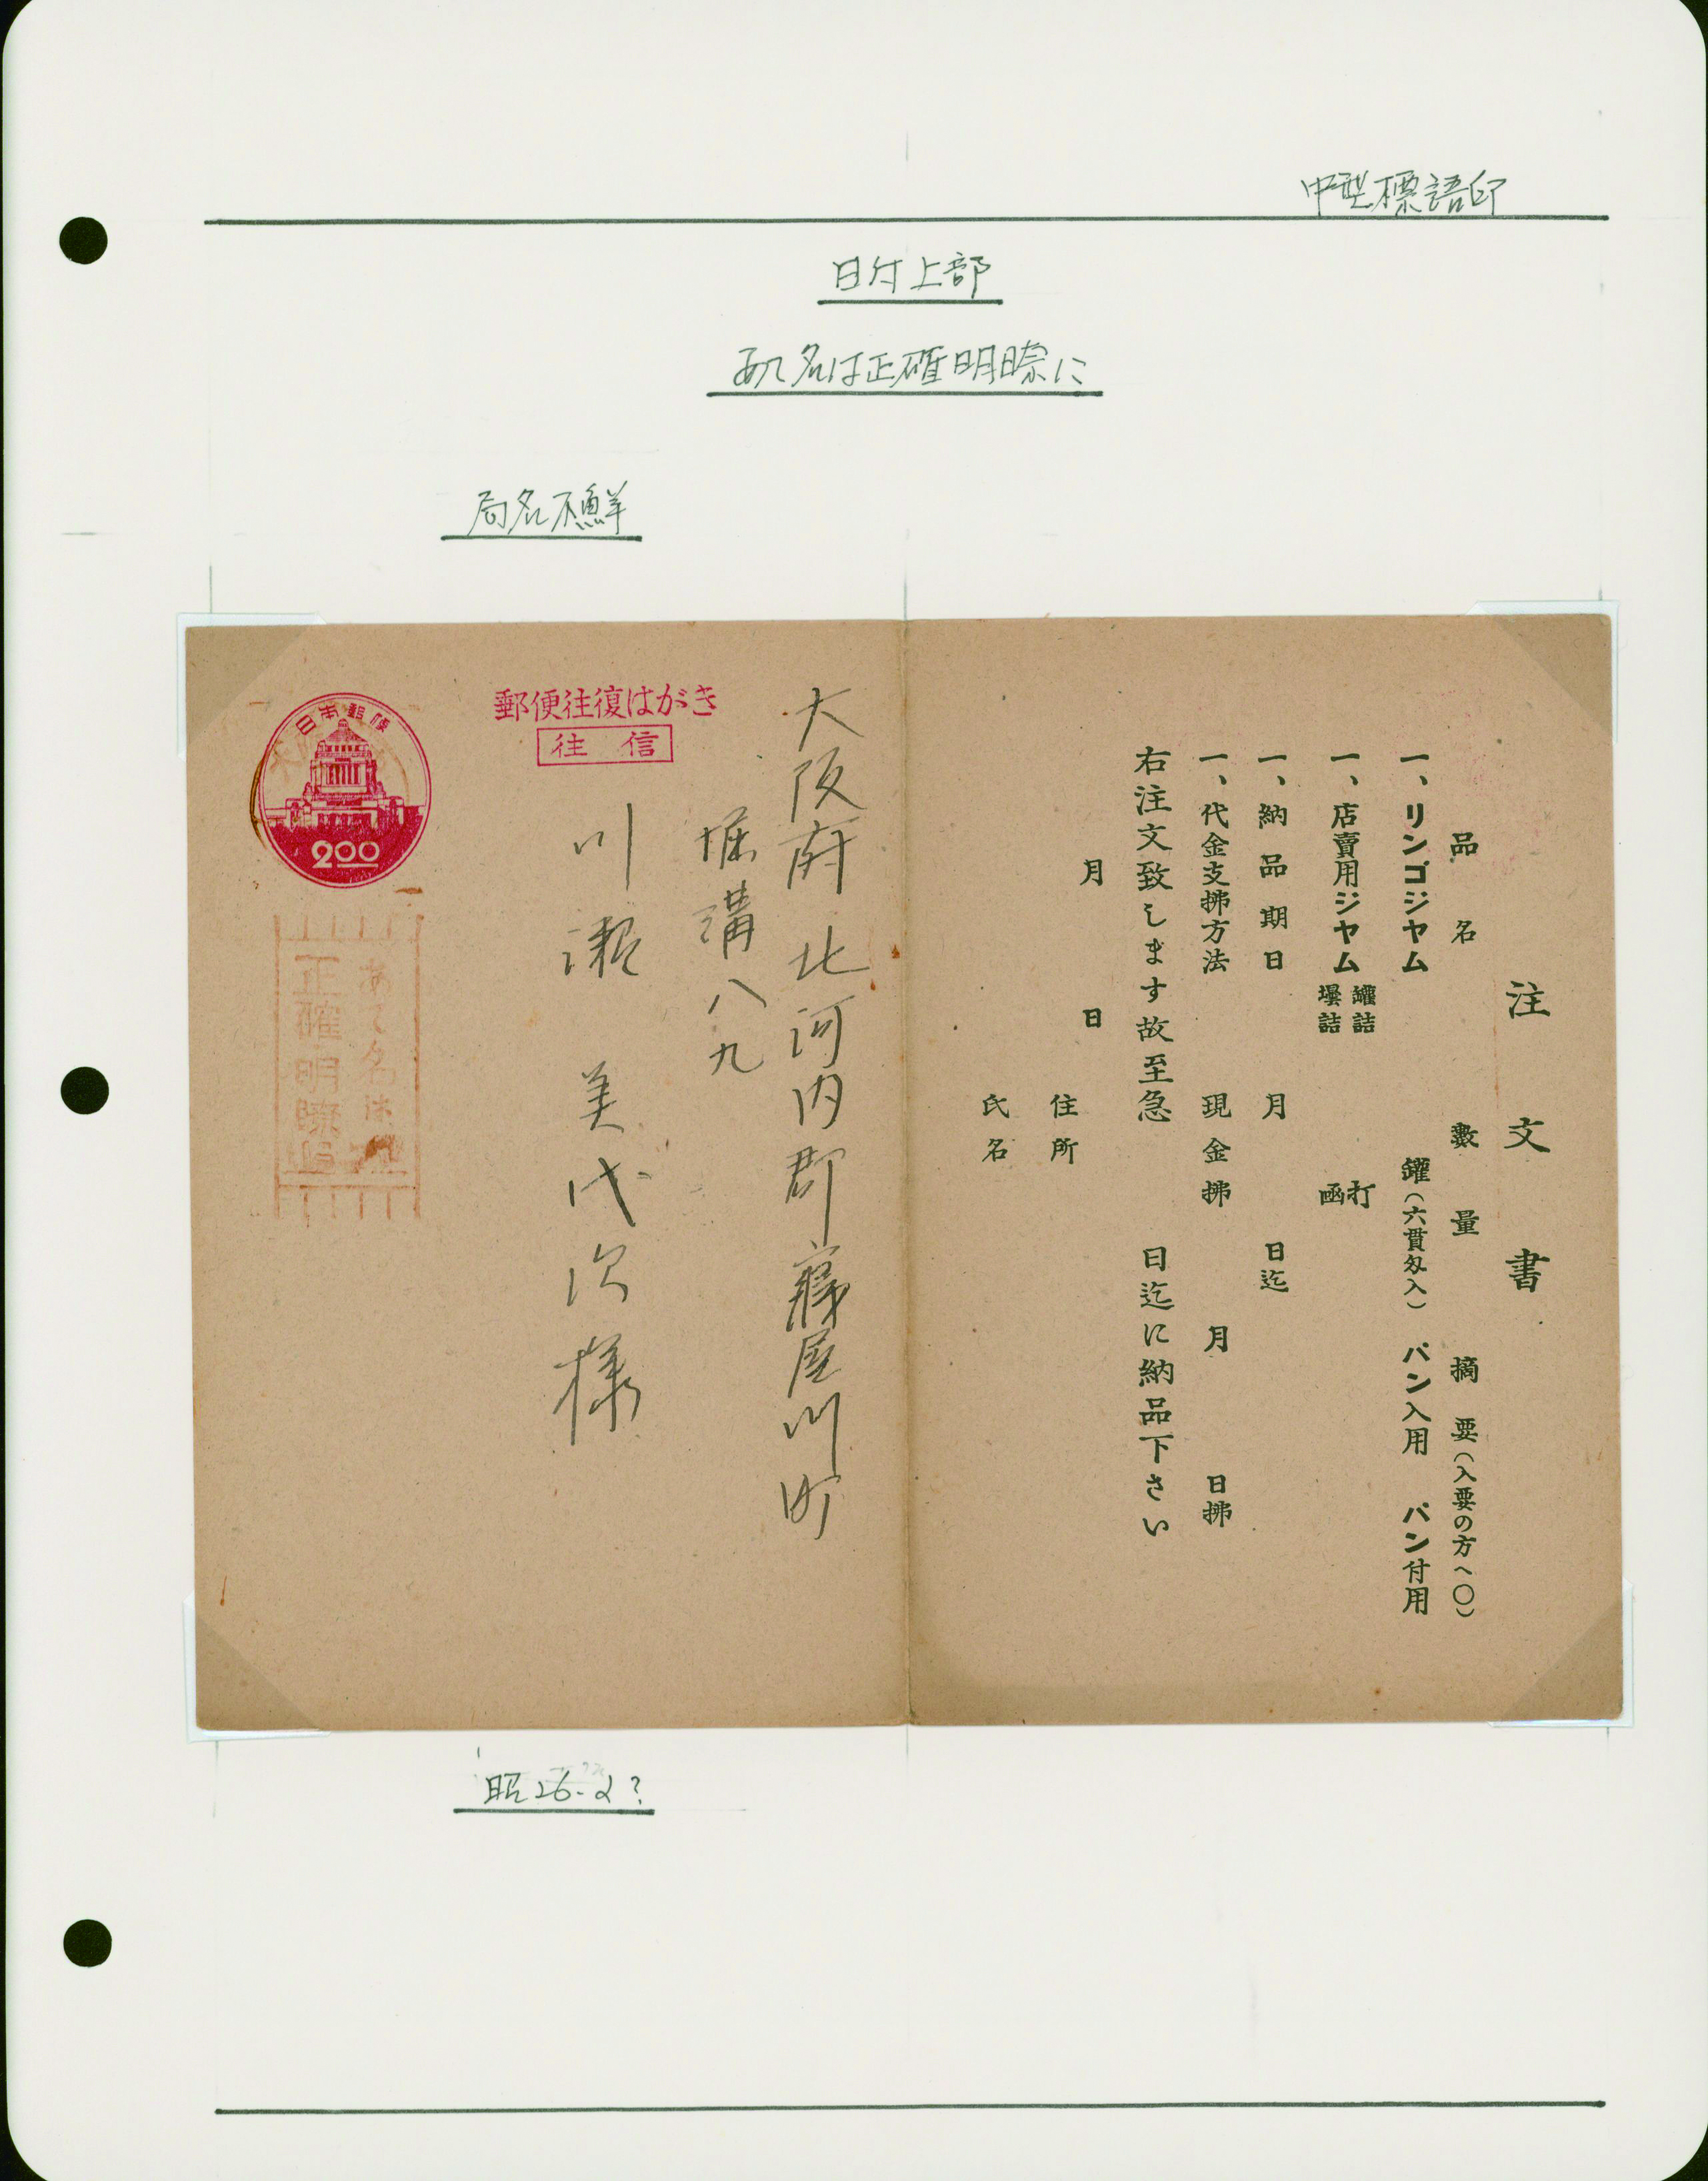 中型標語印
日付上部
あて名は正確明瞭に
局名不鮮
注文書
品名 數量 摘要(入要の方へ〇)
一、リンゴジヤム 罐(六貫匁入) パン入用 パン付用
一、店賣用ジヤム 罐詰 壜詰 打 函
一、納品期日 月 日迄
一、代金支拂方法 現金拂 月 日拂
右注文致します故至急 日迄に納品下さい
月 日
住所
氏名
大阪府北河内郡寝屋川町
堀溝八九
川瀬美代次様
郵便往復はがき
往信
日本郵便
200
あて名は
正確明瞭に
昭26-2?